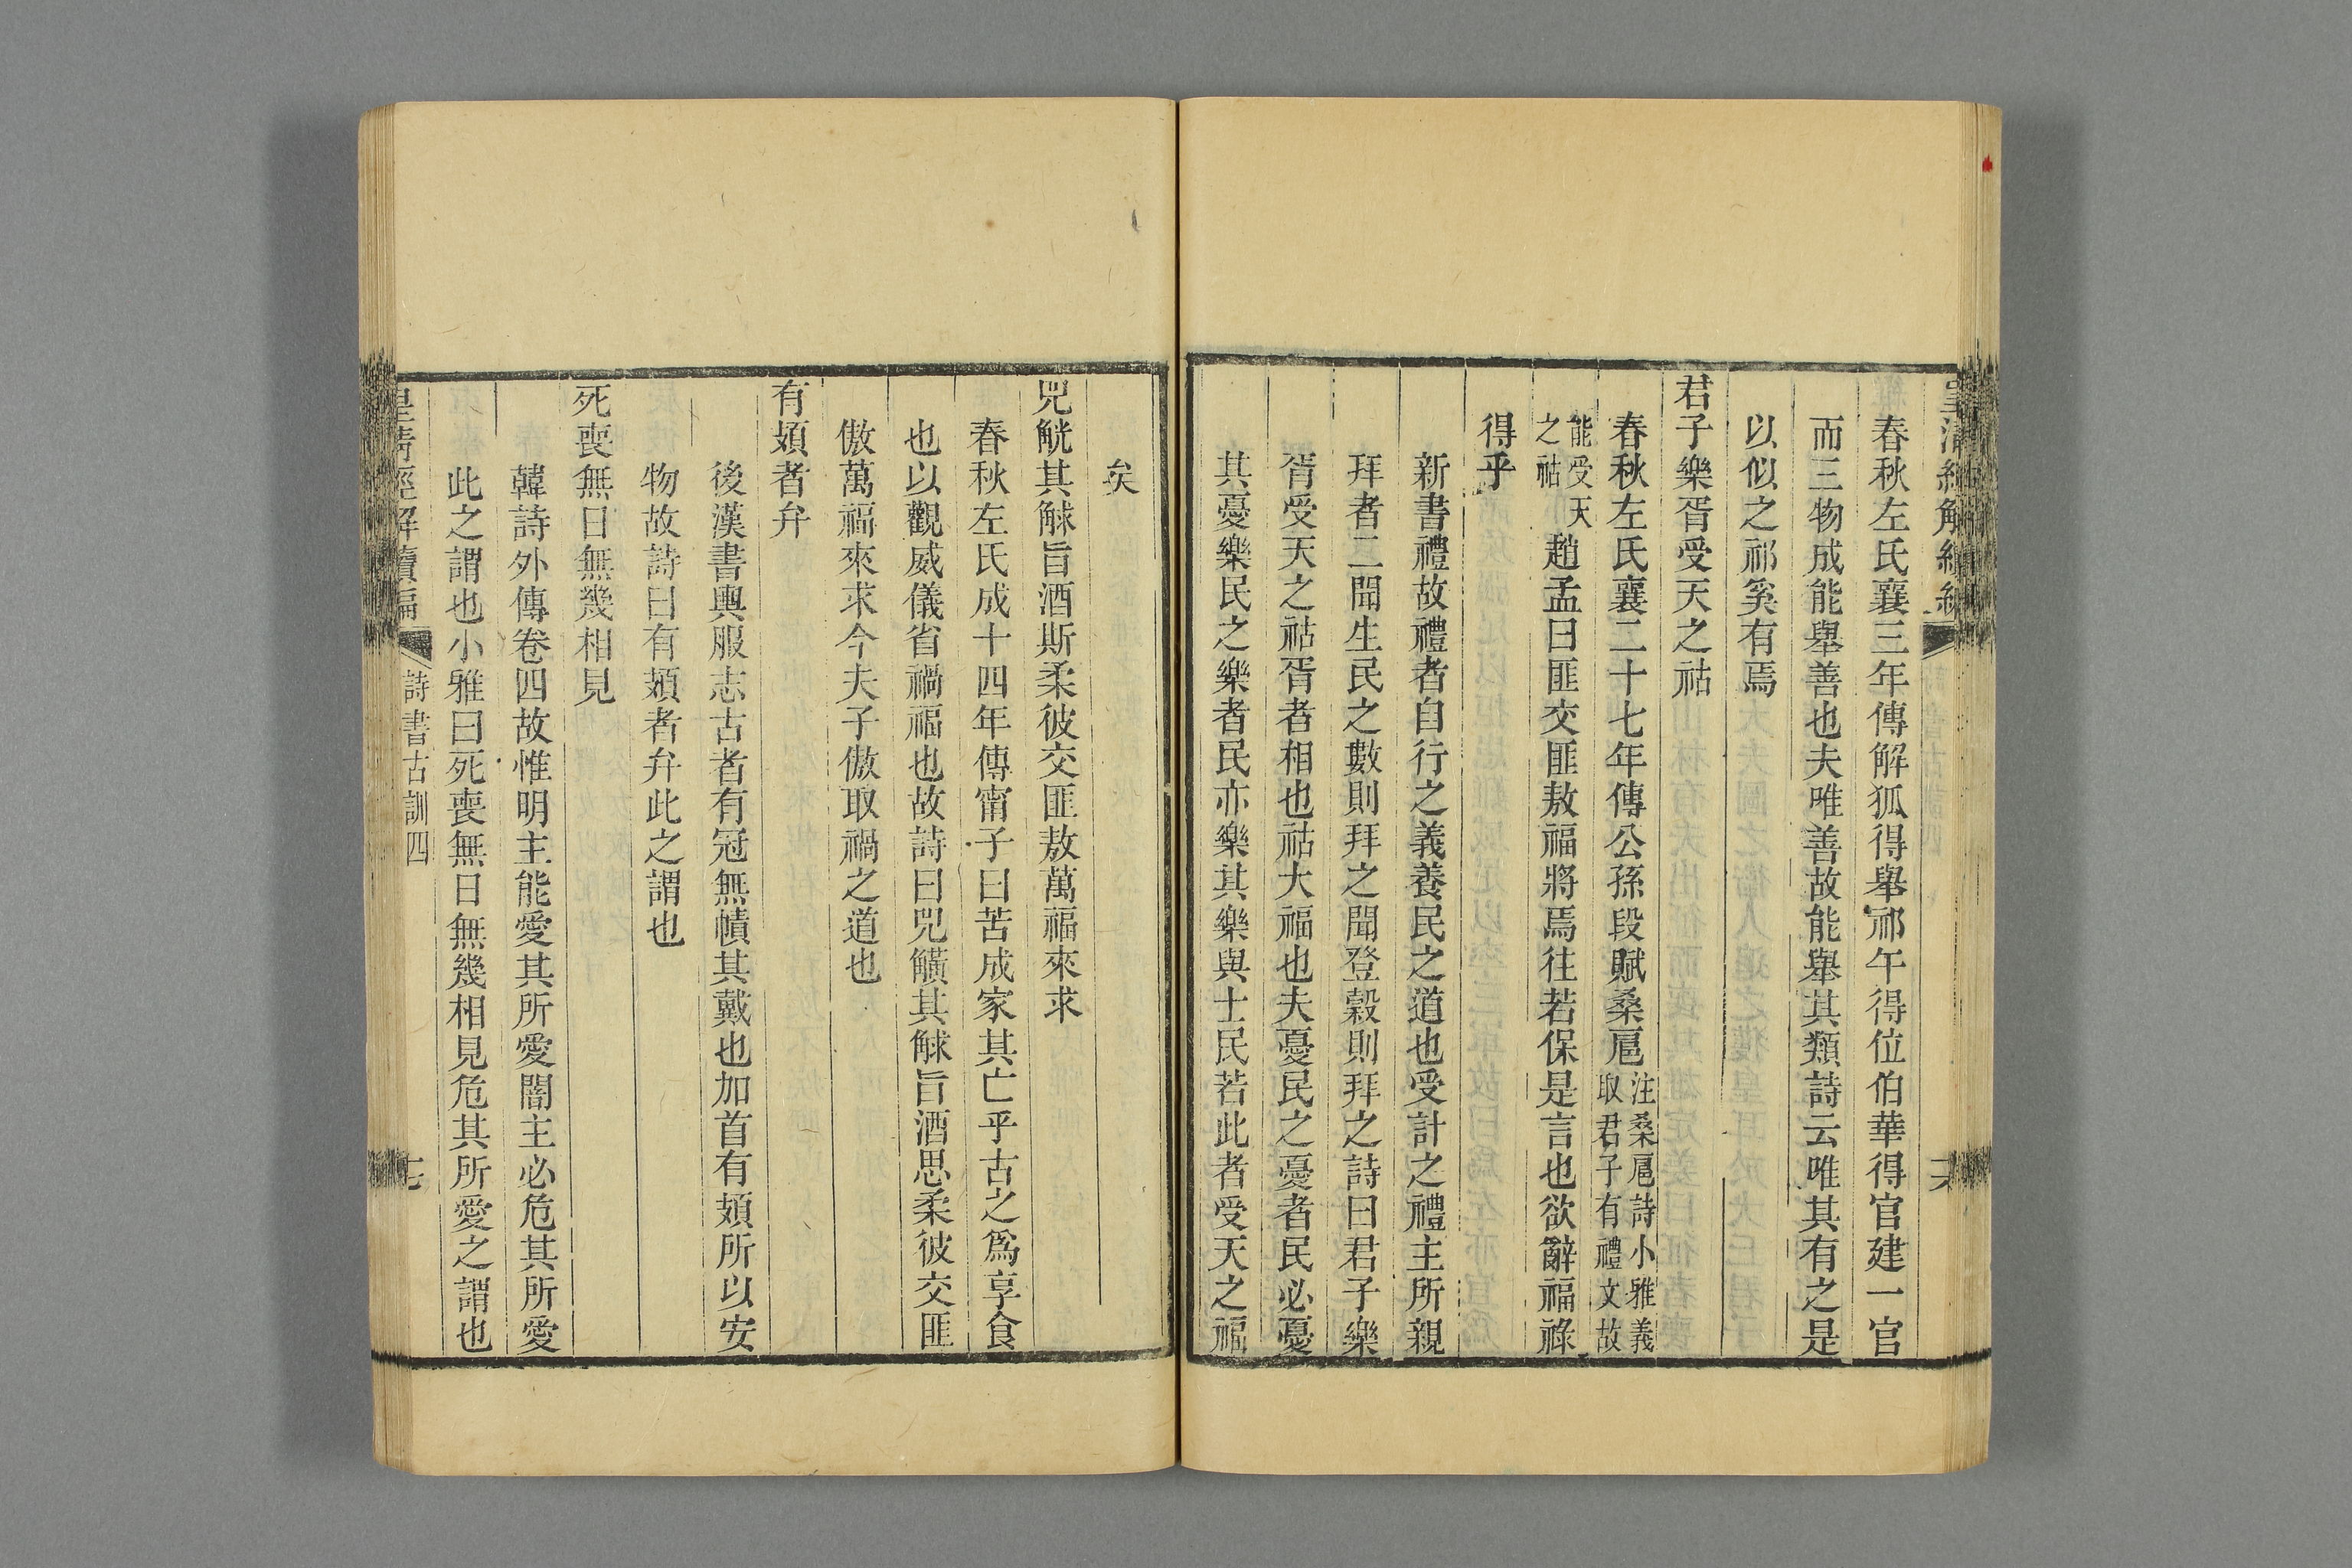 春秋左氏襄三年傳解狐得舉祁午得位伯華得官建一官
而三物成能舉善也夫唯善故能舉其類詩云唯其有之是
以似之祁奚有焉
君子樂胥受天之祜
春秋左氏襄二十七年傳公孫段賦桑扈注桑扈詩小雅義取君子有禮文故
能受天之祜趙孟曰匪交匪敖福將焉往若保是言也欲辭福祿
得乎
新書禮故禮者自行之義養民之道也受計之禮主所親
拜者二聞生民之數則拜之聞登穀則拜之詩曰君子樂
胥受天之祜胥者相也祜大福也夫憂民之憂者民必憂
其憂樂民之樂者民亦樂其樂與士民若此者受天之福
矣
兕觥其觩旨酒斯柔彼交匪敖萬福來求
春秋左氏成十四年傳甯子曰苦成家其亡乎古之爲享食
也以觀威儀省禍福也故詩曰兕觵其觩旨酒思柔彼交匪
傲萬福來求今夫子傲取禍之道也
有頍者弁
後漢書輿服志古者有冠無幘其戴也加首有頍所以安
物故詩曰有頍者弁此之謂也
死喪無日無幾相見
韓詩外傳卷四故惟明主能愛其所愛闇主必危其所愛
此之謂也小雅曰死喪無日無幾相見危其所愛之謂也
皇清經解續編
詩書古訓四
十七